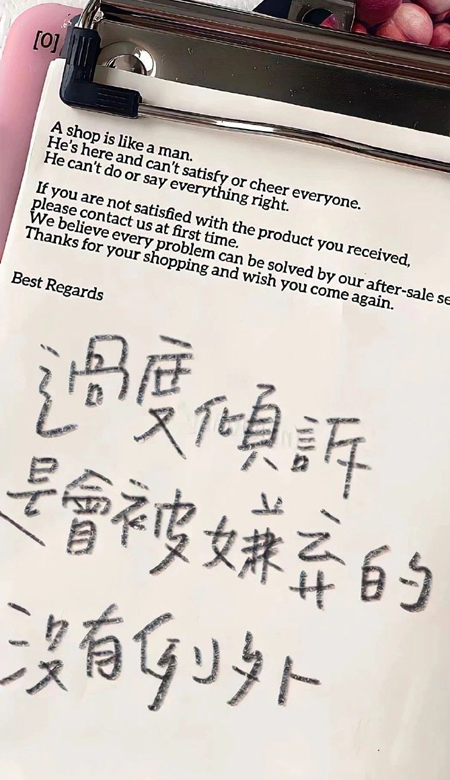 [0]
A shop is like a man.
He's here and can't satisfy or cheer everyone.
He can't do or say everything right.
If you are not satisfied with the product you received,
please contact us at first time.
We believe every problem can be solved by our after-sale se
Thanks for your shopping and wish you come again.
Best Regards
過度傾訴
是會被嫌弃的
沒有例外